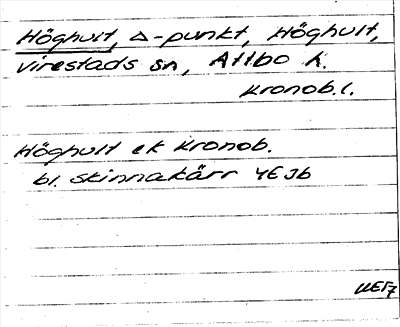 Höghult, △-punkt, Höghult,
Virestads sn, Allbo h.
Kronob. l.
Höghult ek Kronob.
bl. Skinnakärr 4E Jb